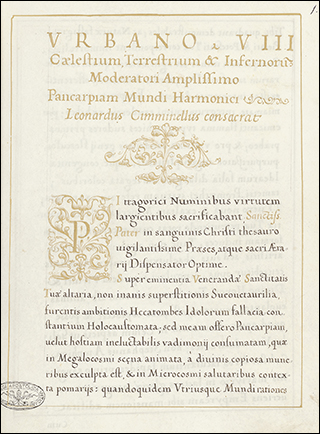 1.
VRBANO VIII
Cælestium, Terrestrium & Infernorū
Moderatori Amplissimo
Pancarpiam Mundi Harmonici
Leonardus Cimminellus consacrat
Pittagorici Numinibus virtutem
largientibus sacrificabant. Sanctiss.
Pater in sanguinis Christi thesauro
uigilantissime Præses, atque sacri Æra-
rij Dispensator Optime.
Super eminentia Veneranda' Sanctitatis
Tua' altaria, non inanis superstitionis Sueouetaurilia,
furentis ambitionis Hecatombes Idolorum fallacia con-
stantium Holocaustomata, sed meam offero Pancarpiam,
uelut hostiam ineluctabilis vadimonij consumatam, quæ
in Megalocosmi scena animata, à diuinis copiosa mune-
ribus exculpta est, & in Microcosmi salutaribus contex-
ta pomarijs: quandoquidem Vtriusque Mundi rationes